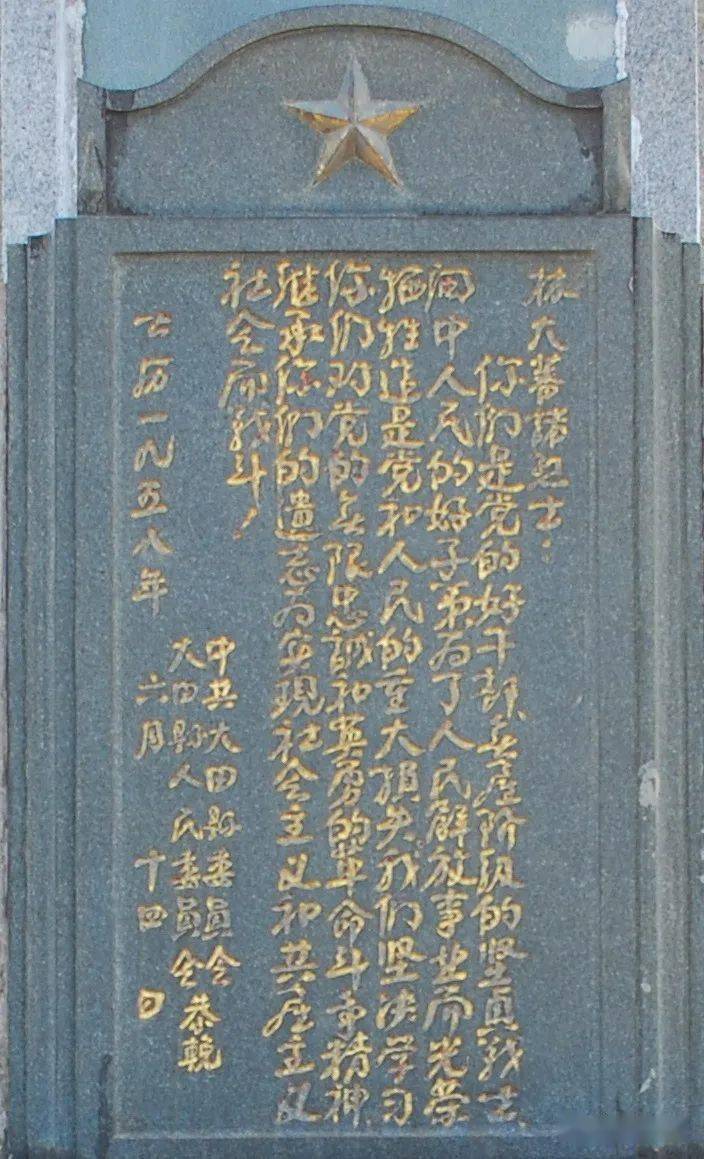 林大蕃諸烈士：
你们是党的好干部、無産阶级的坚貞战士、
闽中人民的好子弟为了人民解放事业而光荣
牺牲這是党和人民的重大損失。我们坚决学习
你们对党的無限忠誠和英勇的革命斗争精神、
继承你们的遺志为实现社会主义和共産主义
社会而战斗！
中共大田縣委員会
大田縣人民委員会 恭輓
公历一九五八年 六月 十四 日